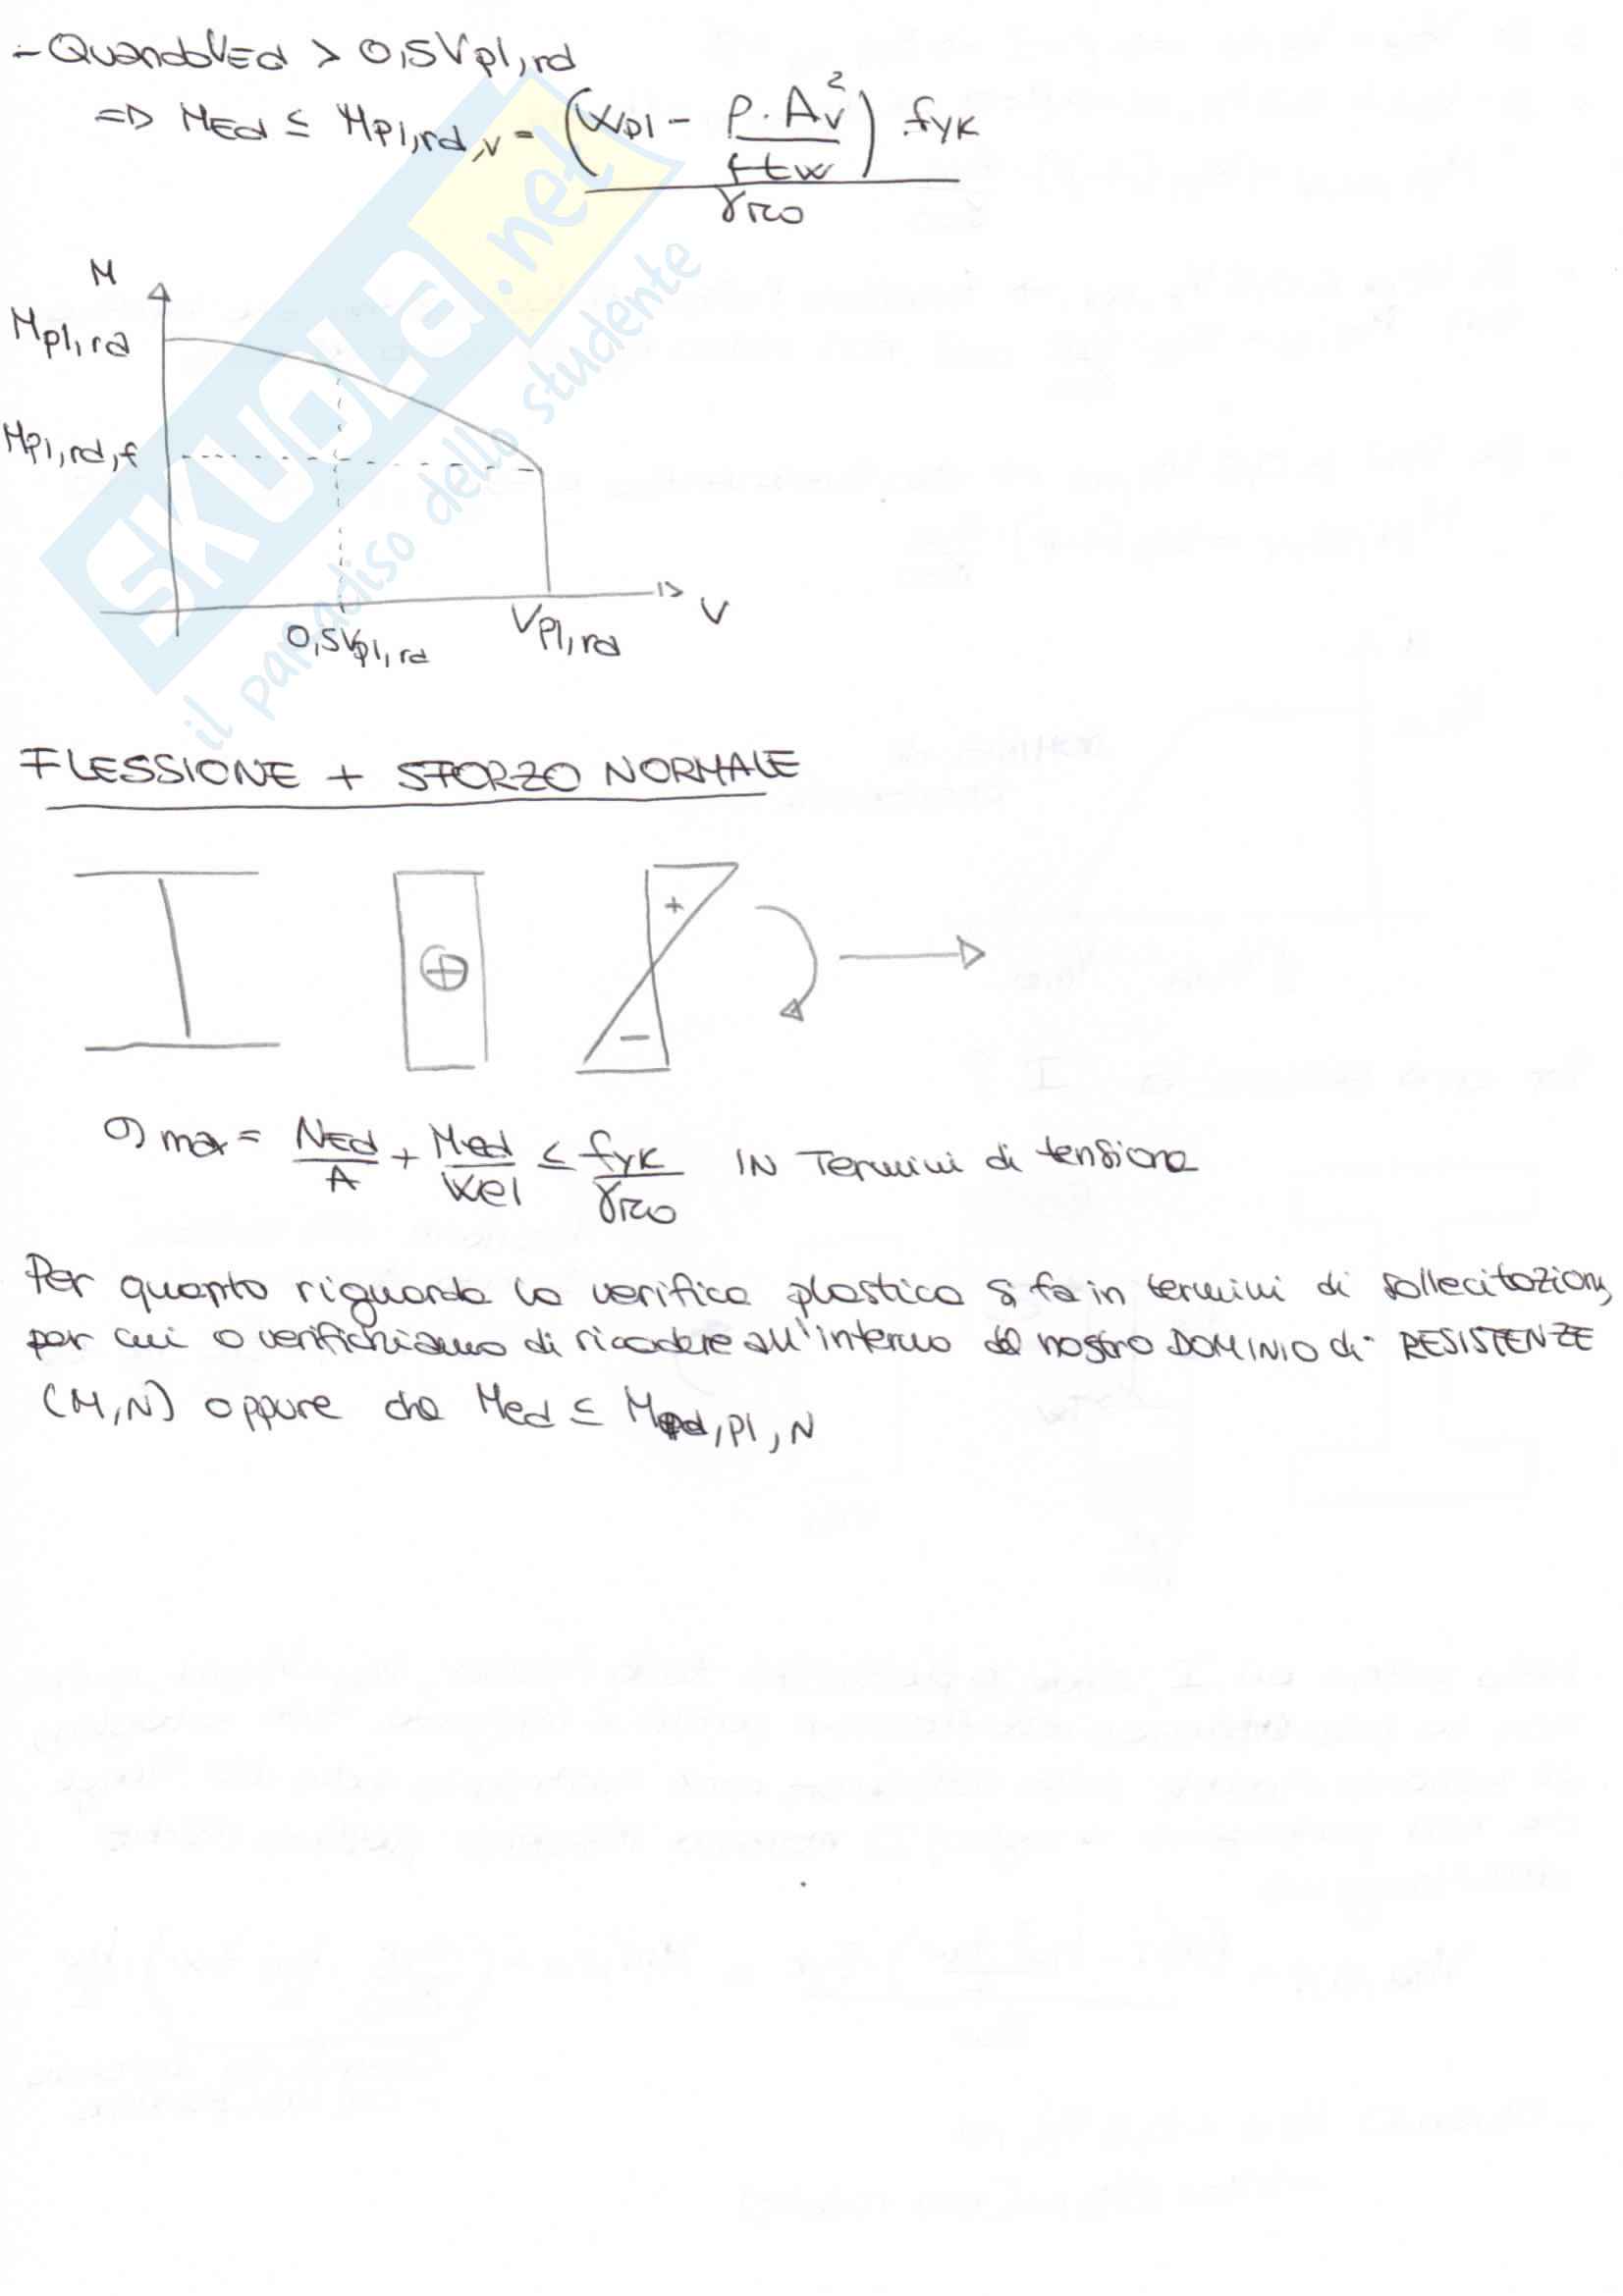 - Quando VEd > 0,5 Vpl,rd
=> MEd ≤ Mpl,rd,v = (Wpl - ρ · Av² / 4tw) fyk / γM0
M
Mpl,rd
Mpl,rd,f
0,5Vpl,rd
Vpl,rd
V
SKUOLA.net
il paradiso dello studente
FLESSIONE + SFORZO NORMALE
+
+
-
σ max = NEd / A + Med / Wel ≤ fyk / γM0 IN Termini di tensione
Per quanto riguarda la verifica plastica si fa in termini di sollecitazioni,
per cui o verifichiamo di ricadere all'interno del nostro DOMINIO di RESISTENZE
(M,N) oppure che Med ≤ MRd,pl,N